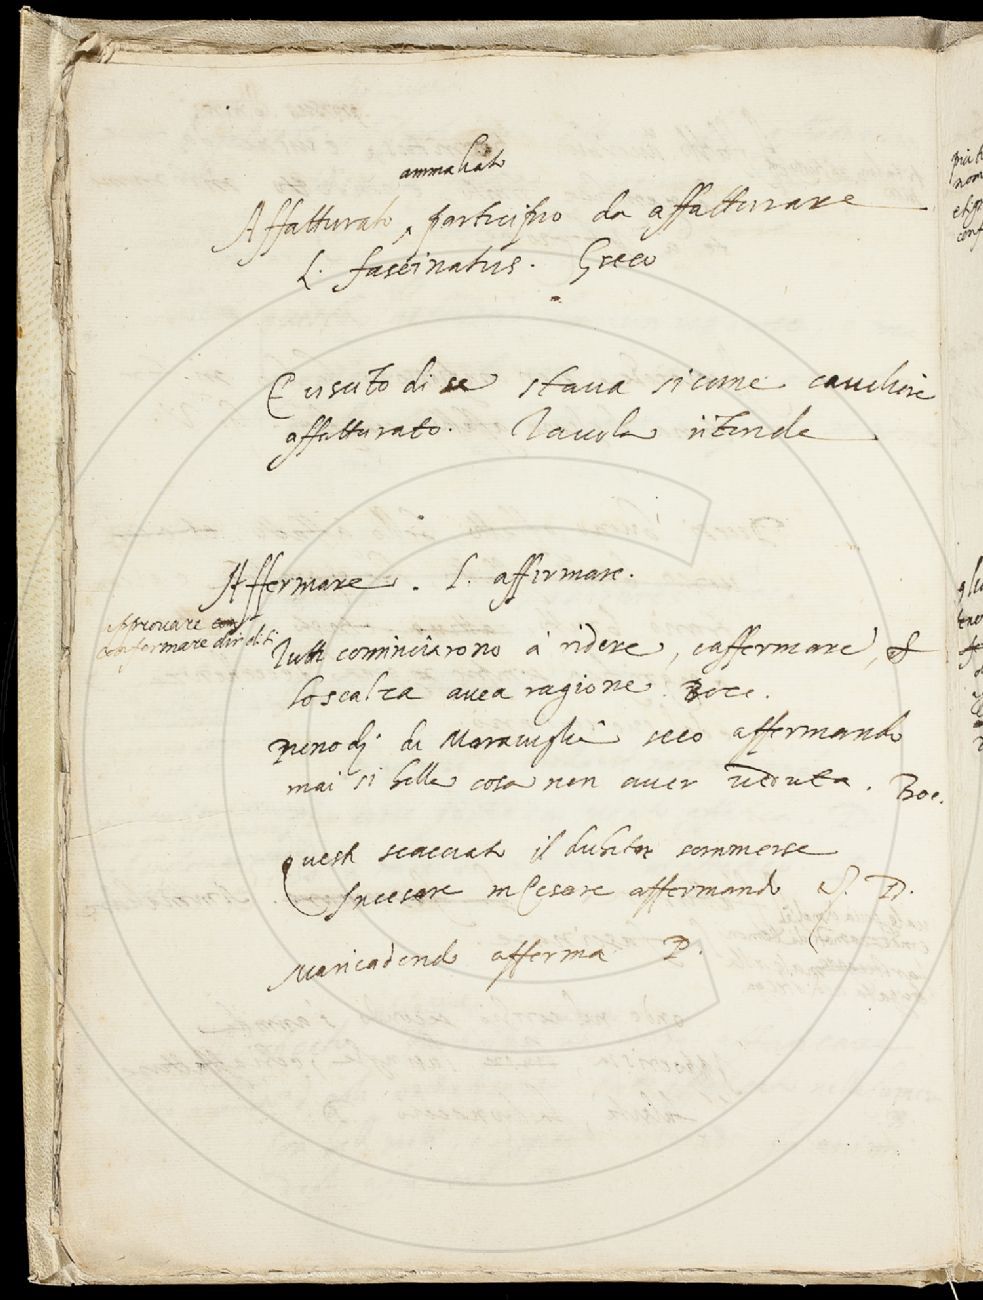 ammaliato
Affatturato, participio da affatturare
L. fascinatus. Greco
E uscito di se staua sicome caualiere
affatturato. Tauola ritonda
Affermare. L. affirmare.
Approuare
confermare dir di si
Tutti cominciarono à ridere, e affermare,
lo scalza auea ragione. Bocc.
pieno di Marauiglia seco affermando
mai si bella cosa non auer ueduta. Boc.
Questi scacciato il dubitar sommerse
In Cesare affermando D.
Ma ricadendo afferma P.